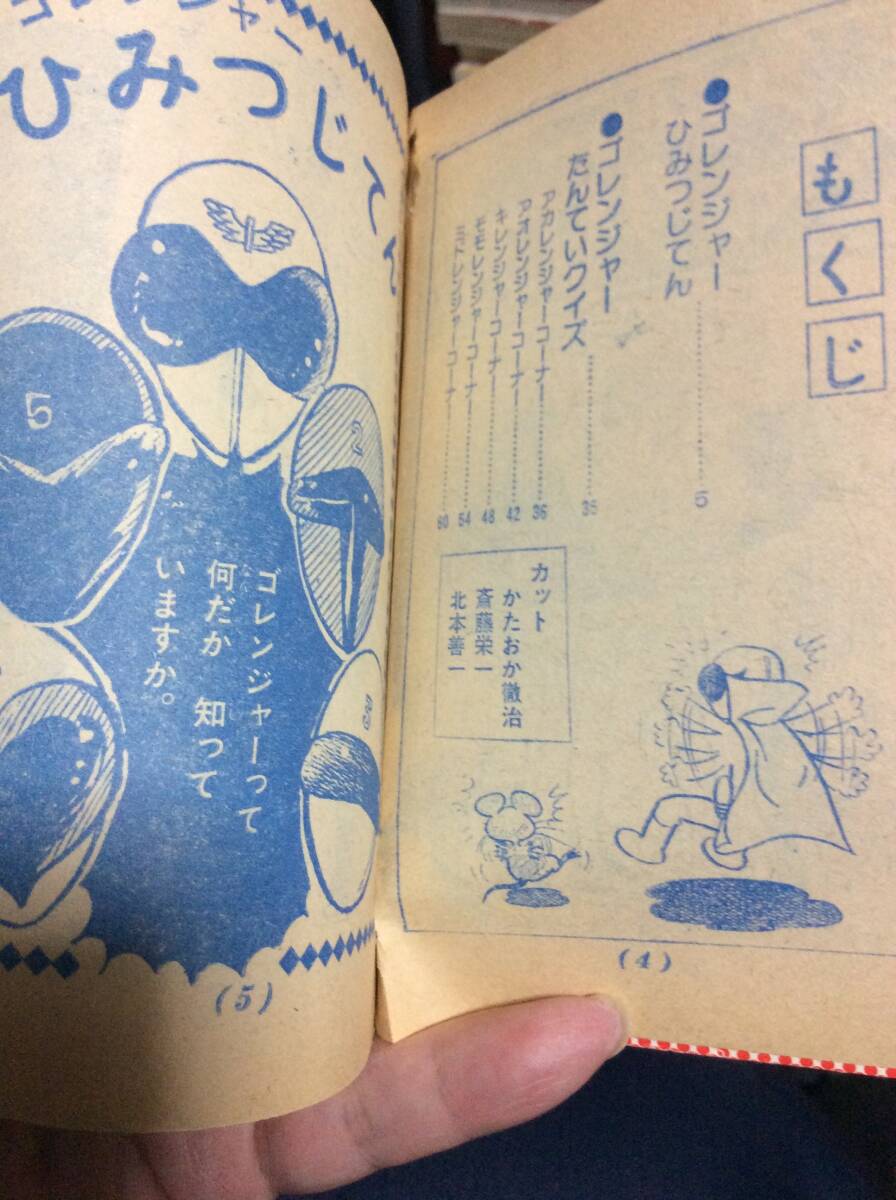 もくじ
●ゴレンジャー
ひみつじてん……5
●ゴレンジャー
たんていクイズ……35
アカレンジャーコーナー……36
アオレンジャーコーナー……42
キレンジャーコーナー……48
モモレンジャーコーナー……54
ミドレンジャーコーナー……60
カット
かたおか徹治
斎藤栄一
北本善一
(4)
ゴレンジャー
ひみつじてん
5
2
3
ゴレンジャーって
何だか 知って
いますか。
(5)